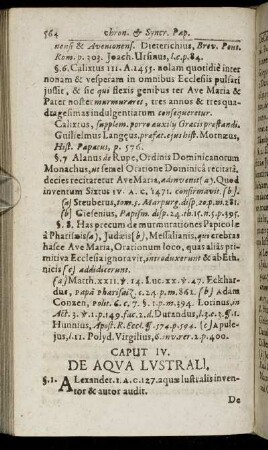 564 chron. & Syncr. Pap.
nensi & Avenionens. Dieterichius, Brev. Pont.
Rom. p. 303. Joach. Ursinus, l.c. p. 84.
§. 6. Calixtus III. A. 1455. nolam quotidiè inter
nonam & vesperam in omnibus Ecclesiis pulsari
jussit, & sic qui flexis genibus ter Ave Maria &
Pater noster murmuraret, tres annos & tres qua-
dragesimas indulgentiarum consequeretur.
Calixtus, supplem. pro auxilij Græcis præstandi.
Guilielmus Langeus, præfat. ejus hist. Mornæus,
Hist. Papatus, p. 576.
§. 7 Alanus de Rupe, Ordinis Dominicanorum
Monachus, ut semel Oratione Dominicâ recitatâ,
decies recitaretur Ave Maria, adinvenit (a), Quod
inventum Sixtus IV. A. C. 1471. confirmavit. (b).
(a) Steuberus, tom. 5. Marpurg. disp. 20. m. 281.
(b) Giesenius, Papism. disp. 24. th. 15. n. 5. p. 395.
§. 8. Has precum demurmurationes Papicolæ
â Pharisæis (a), Judæis (b), Messalianis, qui crebras
hasce Ave Maria, Orationum loco, quas aliàs pri-
mitiva Ecclesia ignoravit, introduxerunt & ab Eth-
nicis (c) addidicerunt.
(a) Matth. XXII. ⅴ. 14. Luc. XX. ⅴ. 47. Eckhar-
dus, papa pharisaiz. c. 24. p. m. 861. (b) Adam
Conzen, polit. 6. c. 7. §. 1. p. m. 394. Lorinus, in
Act. 3. ⅴ. 1. p. 149. fac. 2. d. Durandus, l. 3. c. 3. §. 1.
Hunnius, Apost. R. Eccl. ¶ 574. p. 594. (c) Apule-
jus, l. 11. Polyd. Virgilius, 6 inv. rer. 2. p. 400.
CAPUT IV.
DE AQVA LVSTRALI.
§. 1. ALexander. I. A. C. 127. aquæ lustralis inven-
tor & autor audit.
De